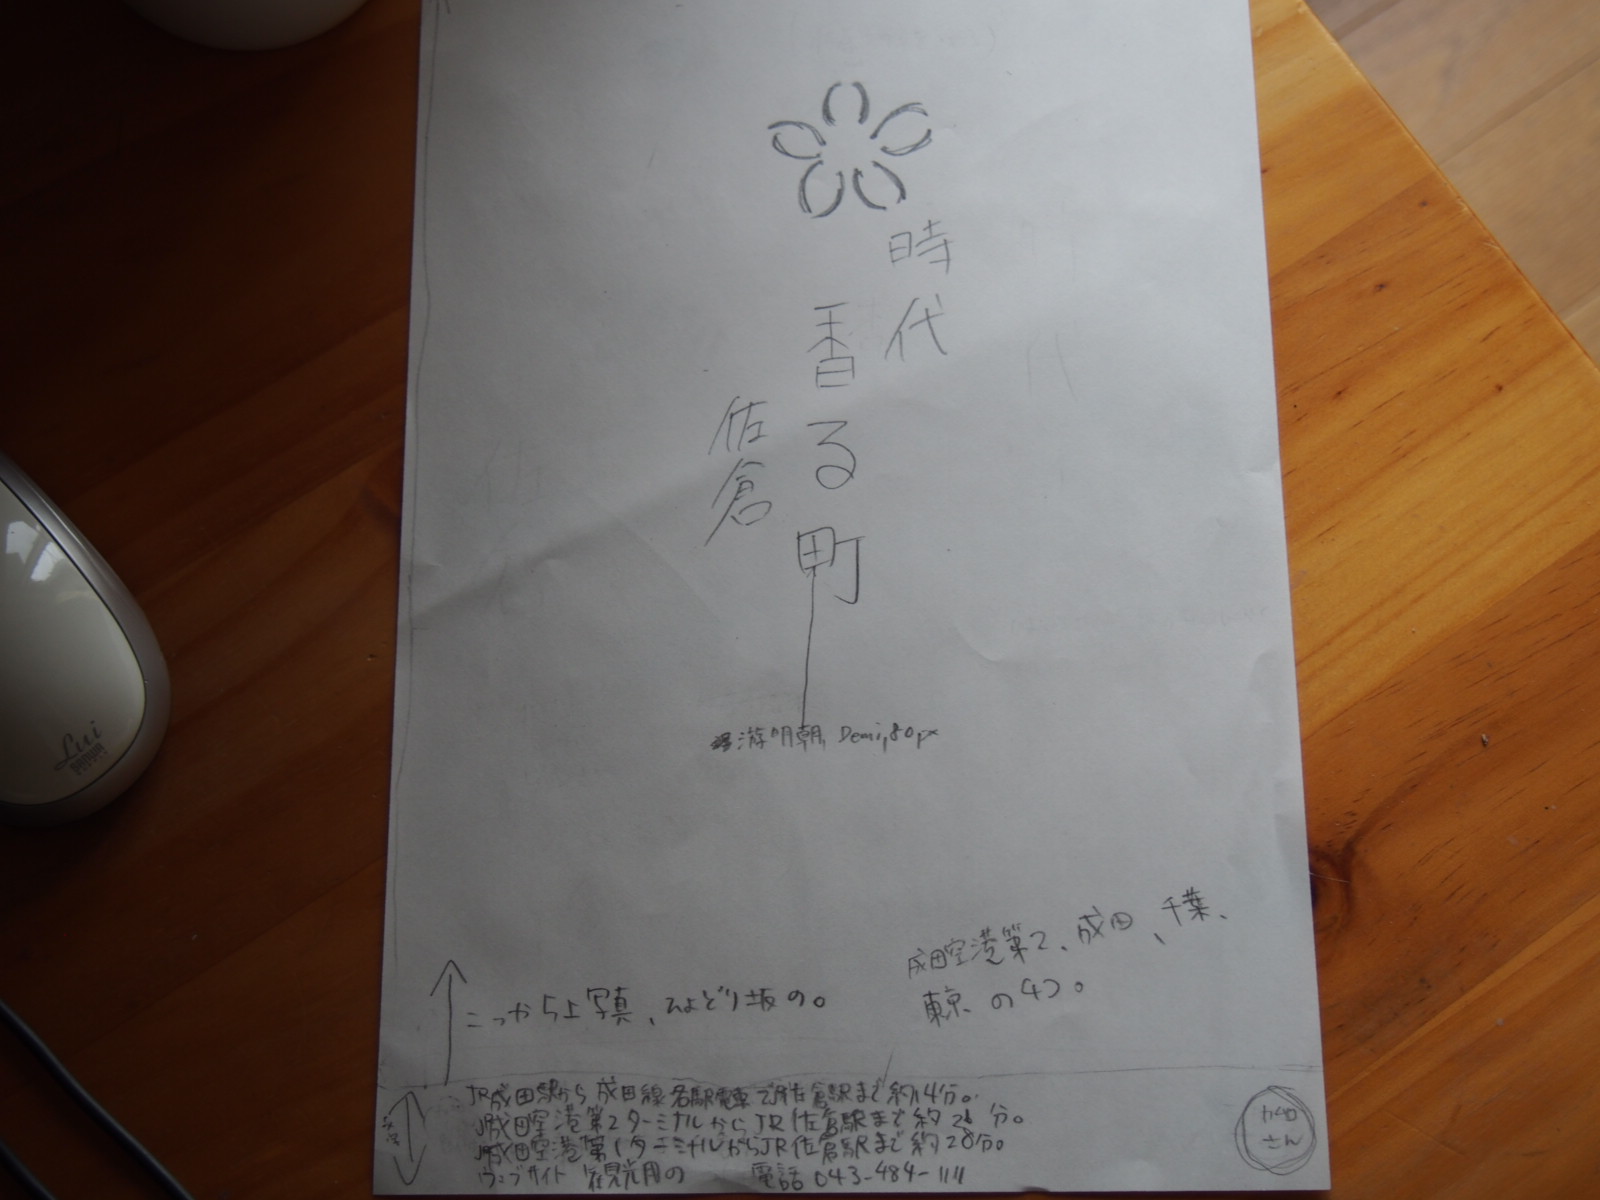 時代
香る町
佐倉
游明朝, Demi, 80px
成田空港第2、成田、千葉、
東京の4つ。
こっから上写真、ひよどり坂の。
JR成田駅から成田線各駅電車でJR佐倉駅まで約14分。
JR成田空港第2ターミナルからJR佐倉駅まで約 分。
JR成田空港第1ターミナルからJR佐倉駅まで約28分。
ウェブサイト 観光用の 電話 043-484-1111
カムロ
さん
Lui